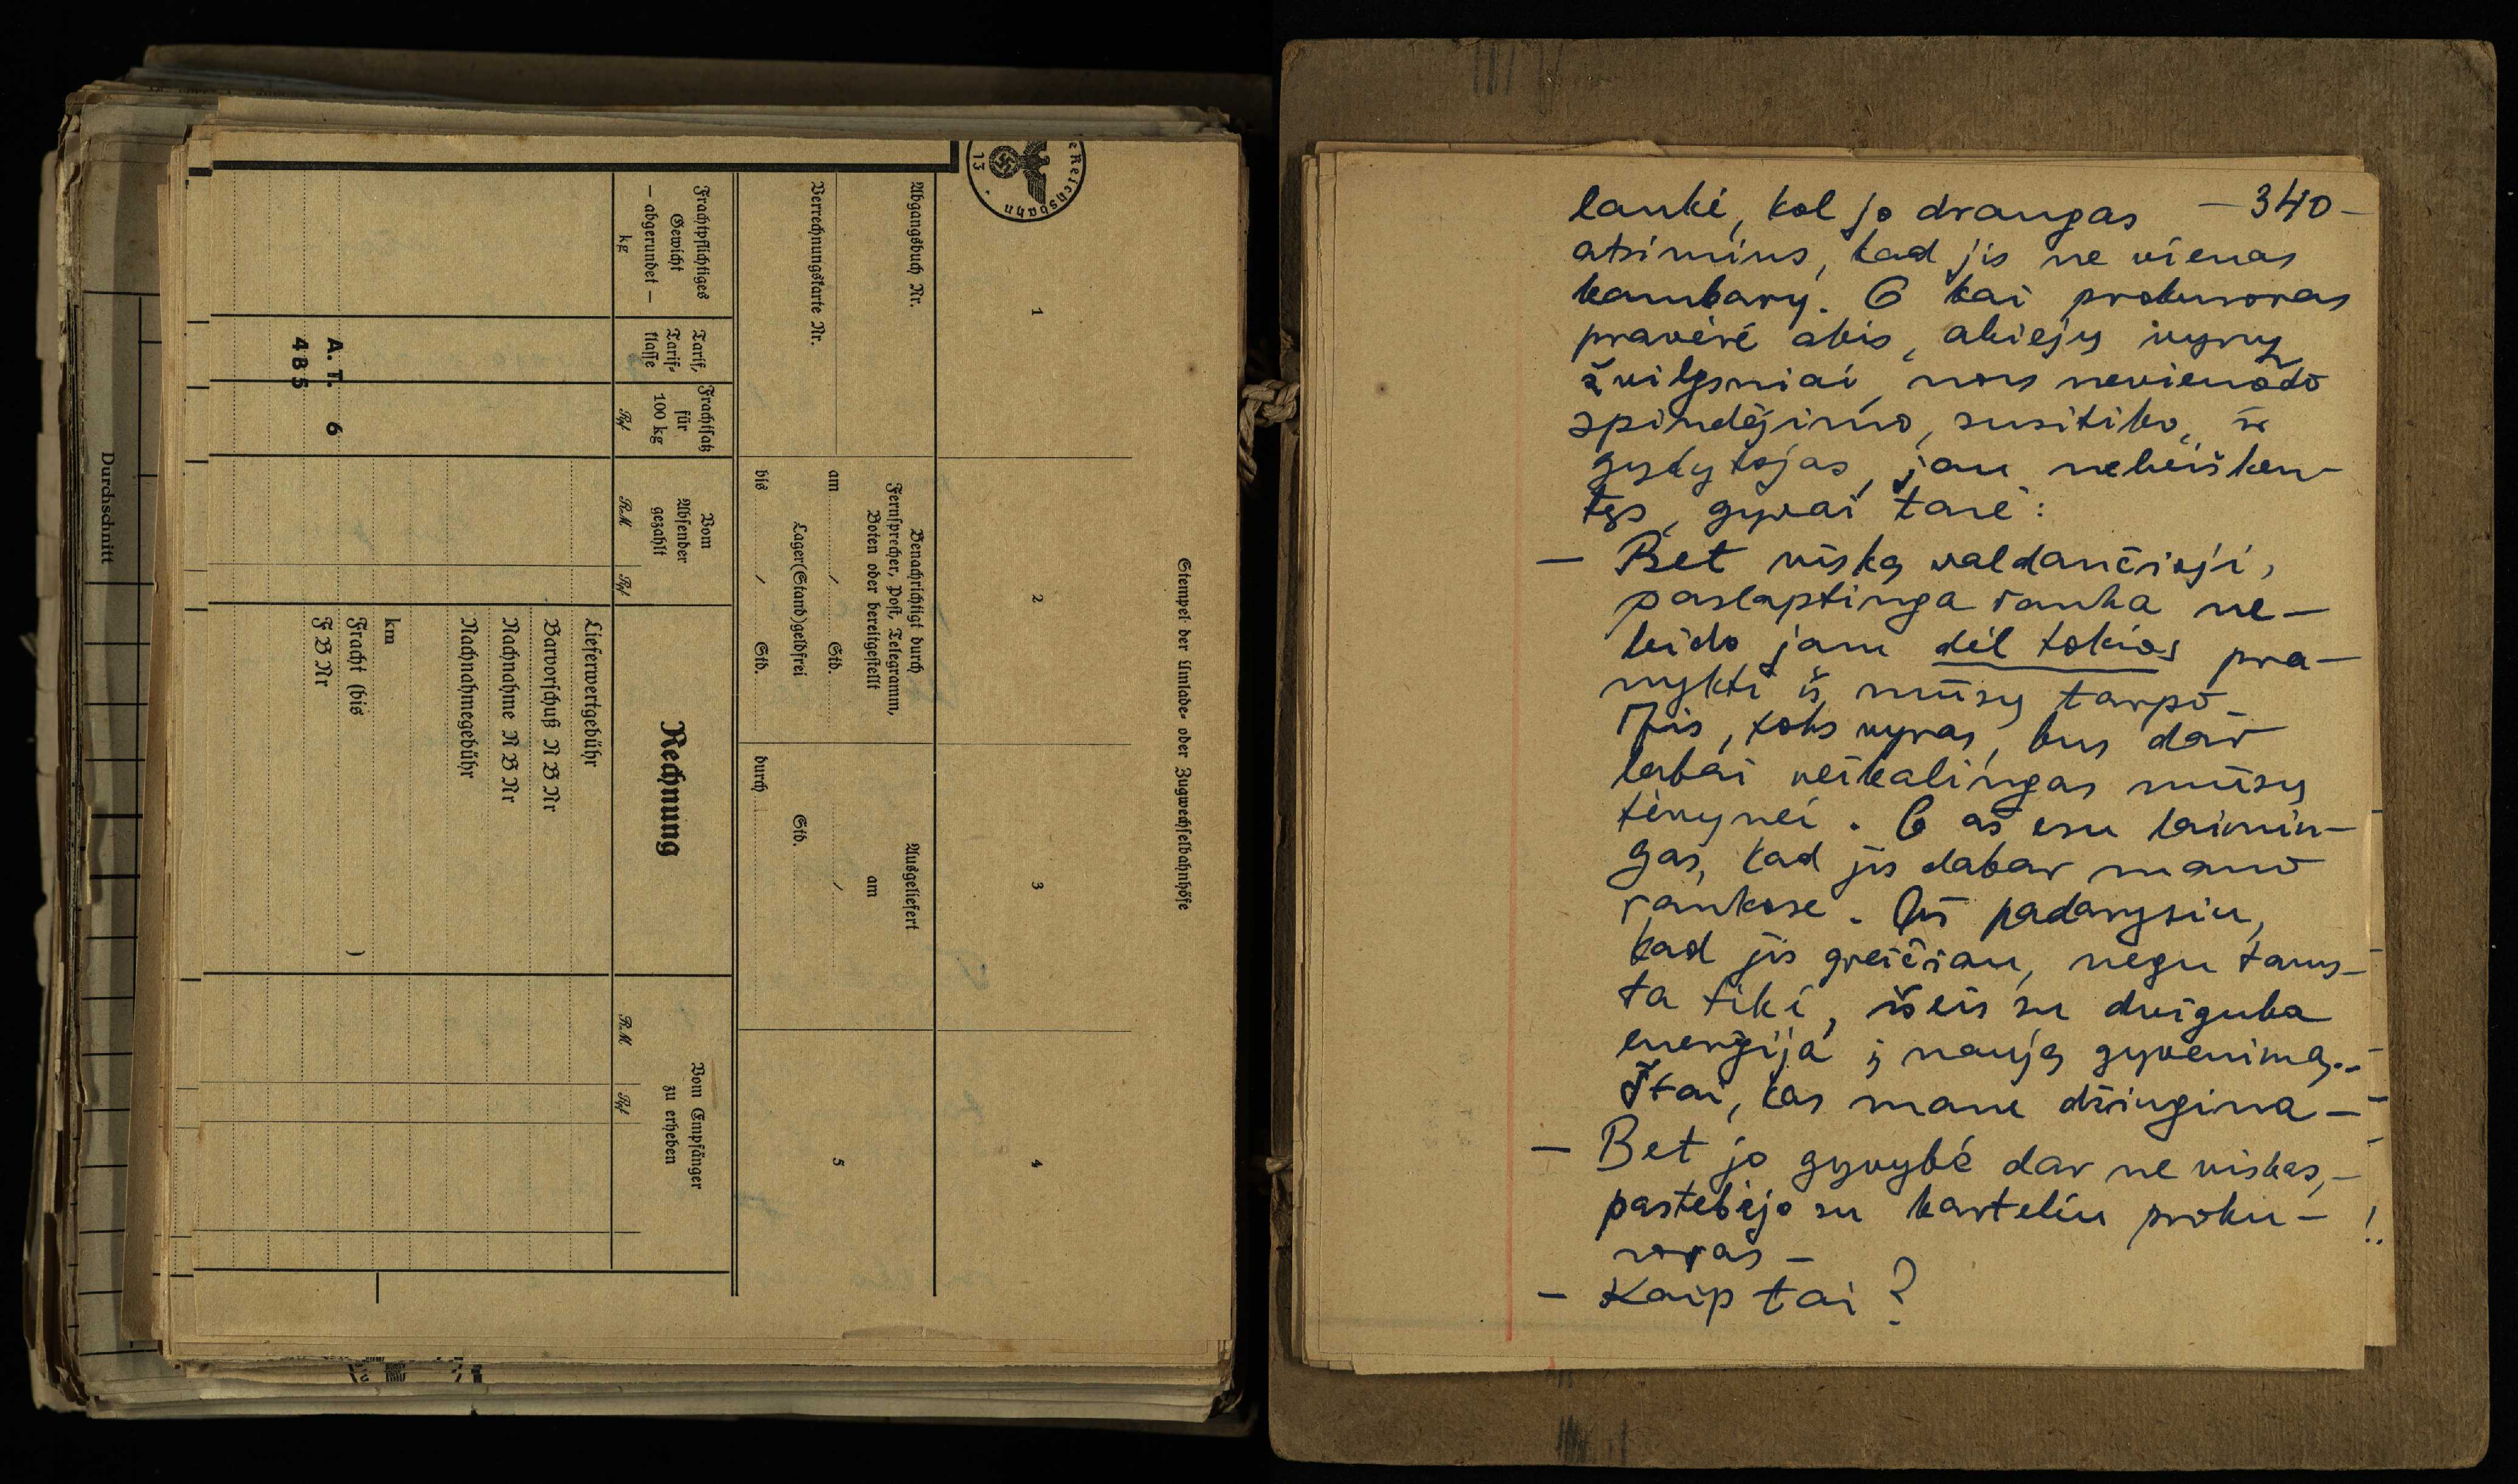 Durchschnitt
eReichsbahn
13
Stempel der Umlade- oder Zugwechselbahnhöfe
1
2
3
4
Abgangsbuch Nr.
Verrechnungskarte Nr.
Benachrichtigt durch
Fernsprecher, Post, Telegramm,
Boten oder bereitgestellt
am / Std.
Lager(Stand)geldfrei
bis / Std.
Ausgeliefert
am
/
Std.
durch
5
Frachtpflichtiges
Gewicht
— abgerundet —
kg
Tarif,
Tarif-
klasse
Frachtsatz
für
100 kg
Rpf
Vom
Absender
gezahlt
RM
Rpf
Rechnung
Vom Empfänger
zu erheben
RM
Rpf
Lieferwertgebühr
Barvorschuß N B Nr
Nachnahme N B Nr
Nachnahmegebühr
km
Fracht (bis )
F B Nr
A. T. 6
4 B 5
— 340 —
laukė, kol jo draugas
atsimins, kad jis ne vienas
kambary. O kai prokuroras
pravėrė akis, abiejų vyrų
žvilgsniai, nors nevienodo
spindėjimo, susitiko, ir
gydytojas, jau nebeišken-
tęs, gyvai tarė:
— Bet viską valdančioji,
paslaptinga ranka ne-
leido jam dėl tokios pra-
nykti iš mūsų tarpo.
Jis, toks vyras, bus dar
labai reikalingas mūsų
tėvynei. O aš esu laimin-
gas, kad jis dabar mano
rankose. Aš padarysiu,
kad jis greičiau, negu tams-
ta tiki, išeis su dviguba
energija į naują gyvenimą..
Štai, kas mane džiugina —
— Bet jo gyvybė dar ne viskas, —
pastebėjo su karteliu proku-
roras —
— Kaip tai?